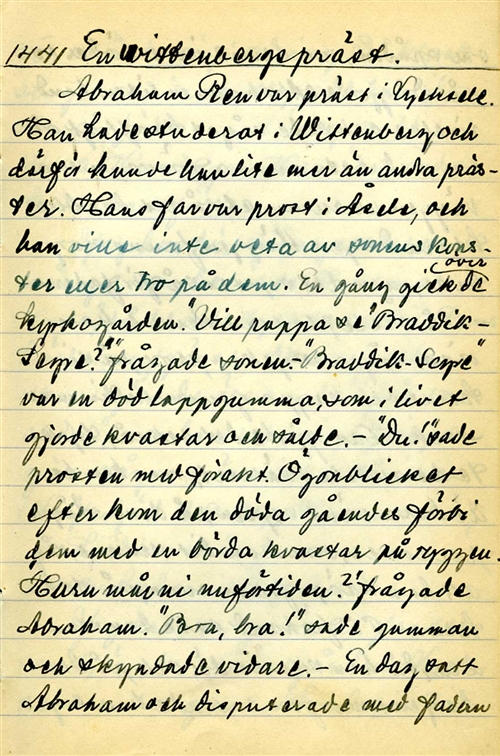 1441 En wittenbergspräst.
Abraham Ren var präst i Lycksele.
Han hade studerat i Wittenberg och
därför kunde han lite mer än andra präs-
ter. Hans far var prost i Åsele, och
han ville inte veta av sonens kons-
ter eller tro på dem. En gång gick de
över
kyrkogården. "Vill pappa se "Braddik-
"frågade sonen. - "Braddik-
var en död lappgumma, som i livet
gjorde kvastar och sålde. - "Du!" sade
prosten med förakt. Ögonblicket
efter kom den döda gåendes förbi
dem med en börda kvastar på ryggen.
"Huru mår ni nuförtiden?" frågade
Abraham. "Bra, bra!" sade gumman
och skyndade vidare. - En dag satt
Abraham och disputerade med fadern